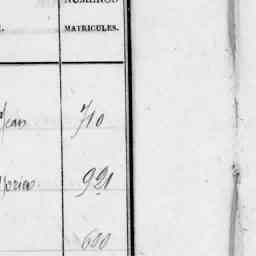 NUMÉROS
MATRICULES.
Jean 710
921
600